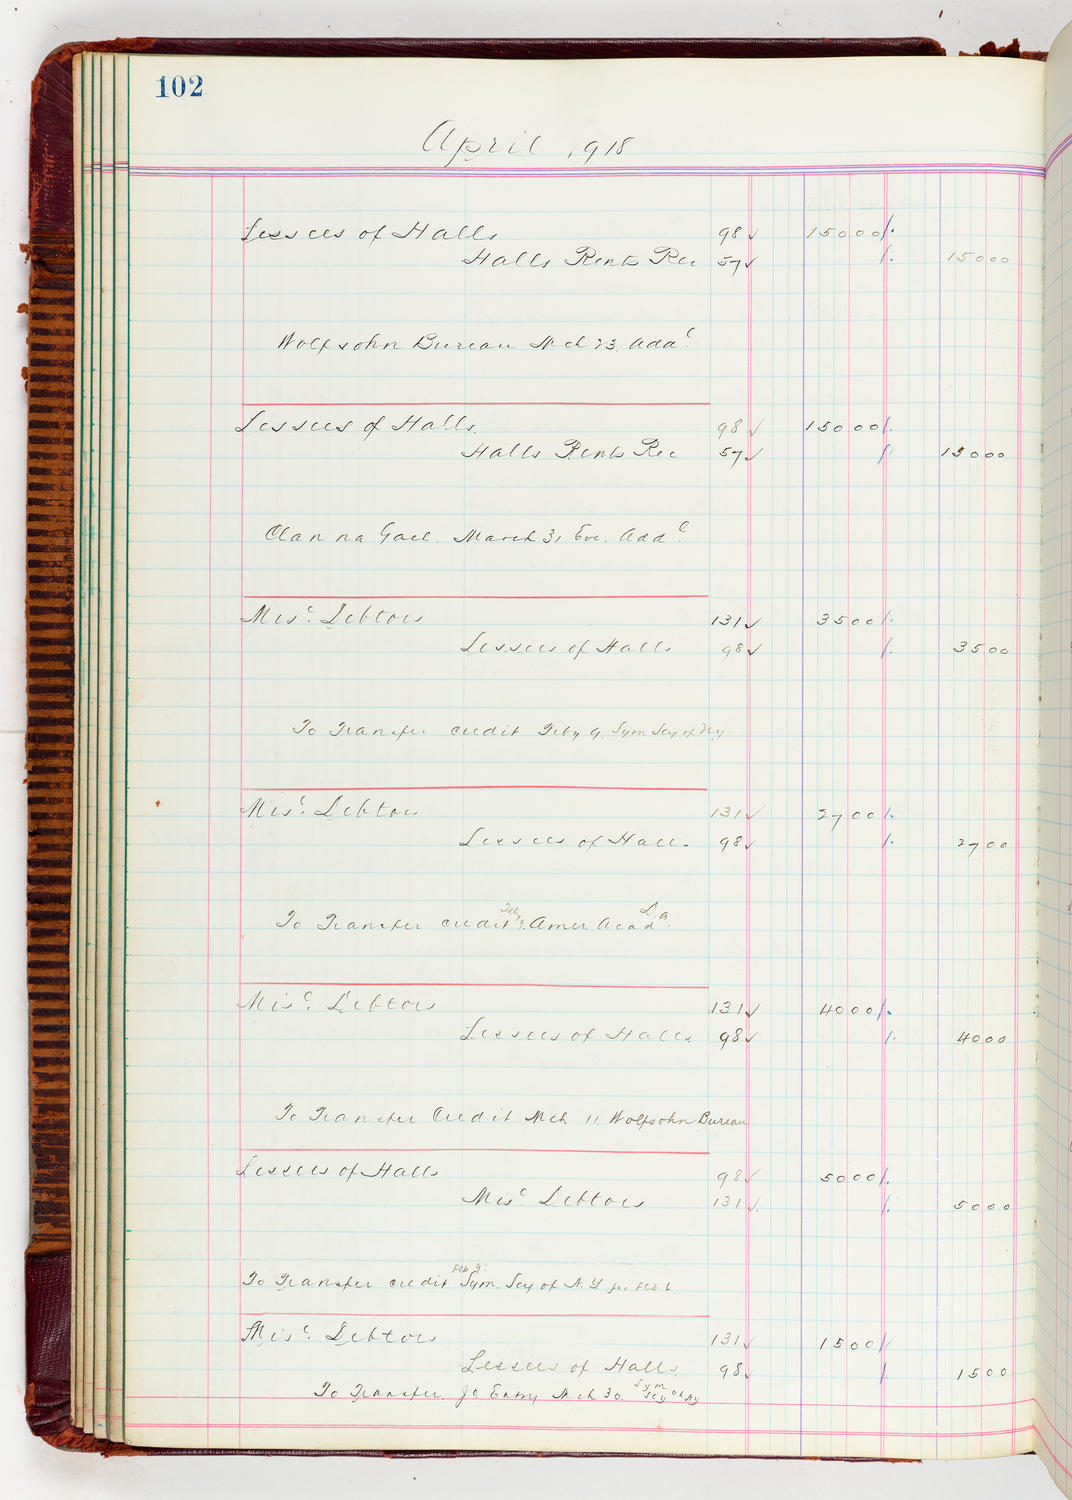 102
April 1918
Lessees of Halls 98 ✓ 15000
Halls Rents Rec 57 ✓ 15000
Wolfsohn Bureau Mch 23 Add<sup>l</sup>
Lessees of Halls. 98 ✓ 15000
Halls Rents Rec 57 ✓ 15000
Clan na Gael. March 31 Eve. Add<sup>l</sup>
Misc. Debtors 131 ✓ 3500
Lessees of Halls 98 ✓ 3500
To Transfer credit Feby 9. Sym Socy of NY
Misc. Debtors 131 ✓ 2700
Lessees of Halls 98 ✓ 2700
To Transfer credit Feby 9. Amer Acad D.a.
Misc. Debtors 131 ✓ 4000
Lessees of Halls 98 ✓ 4000
To Transfer Credit Mch 11. Wolfsohn Bureau
Lessees of Halls 98 ✓ 5000
Misc. Debtors 131 ✓ 5000
To Transfer credit Feb 9. Sym. Socy of N.Y. Feb 6
Misc. Debtors 131 ✓ 1500
Lessees of Halls 98 ✓ 1500
To Transfer Jo Entry Mch 30. Sym Socy of Ny